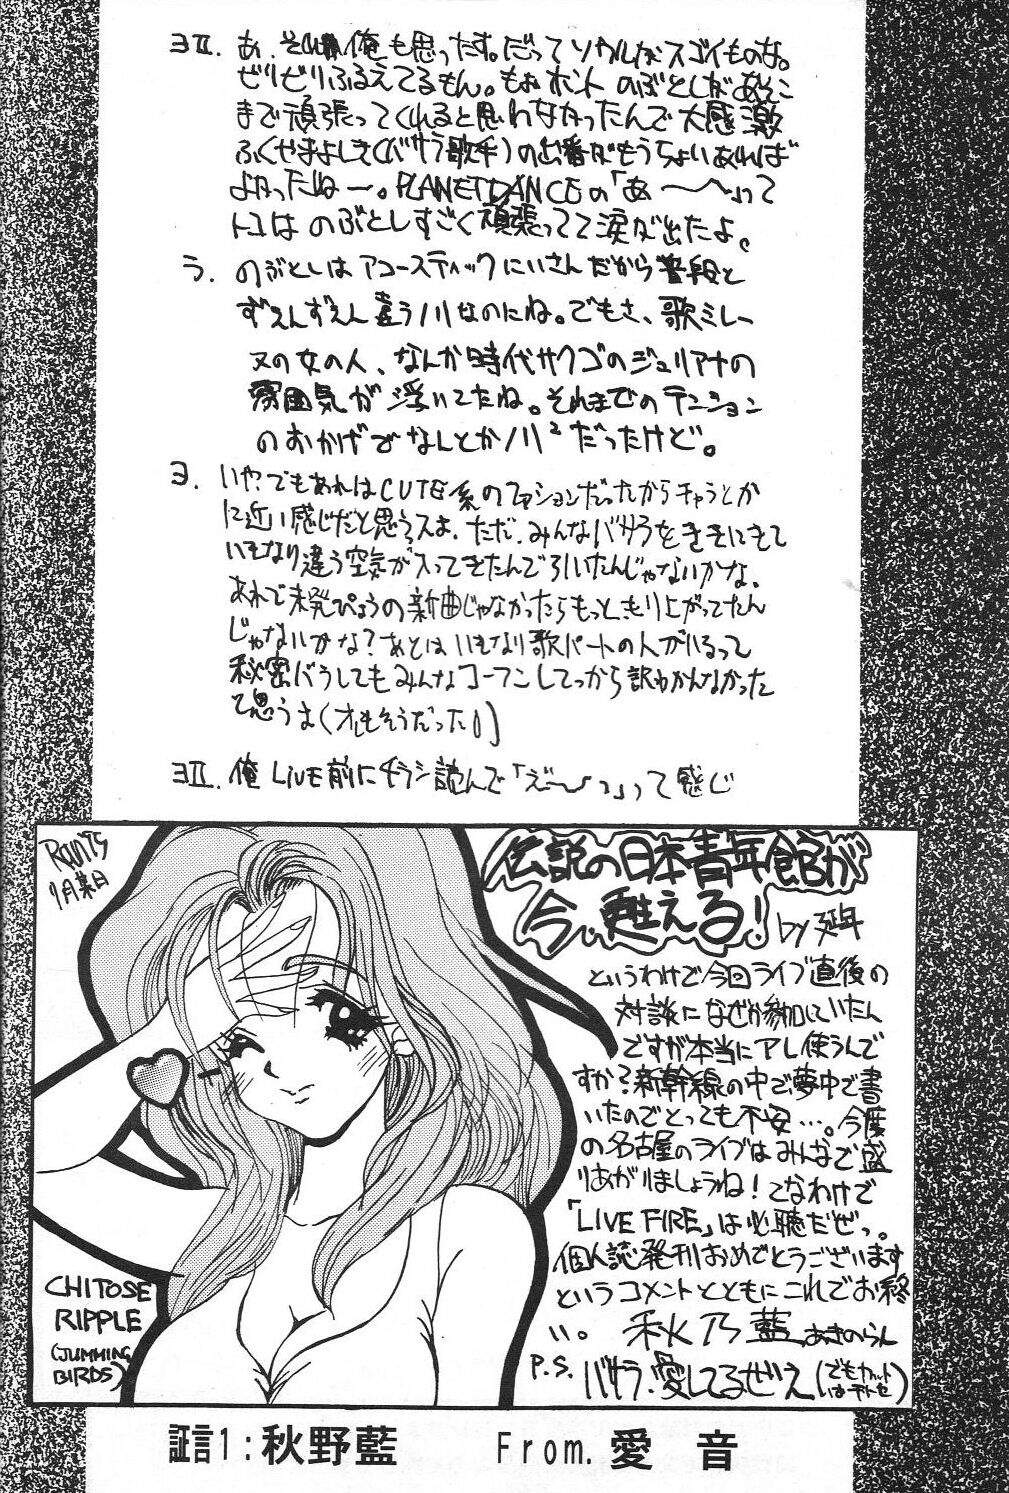 ヨⅡ. あ、それ俺も思ったす。だってソウルがスゴイものな。
ビリビリふるえてるもん。もぉホント のぶとしがあそこ
まで頑張ってくれると思わなかったんで大感激
ふくやまよしき(バサラ歌手)の出番がもうちょいあれば
よかったねー。PLANET DANCEの「あ〜〜っ」って
トコは のぶとしすごく頑張ってて涙が出たよ。
う. のぶとしはアコースティックにいさんだから普段と
ずえんずえん違うノリなのにね。でもさ、歌ミレー
ヌの女の人、なんか時代サクゴのジュリアナの
雰囲気が浮いてたね。それまでのテンション
のおかげでなんとかノリノリだったけど。
ヨ. いや?でもあれはCUTE系のファションだったからチャラとか
に近い感じだと思うスよ。ただ、みんなバサラをききにきて
いきなり違う空気が入ってきたんで引いたんじゃないかな、
あれで未発ぴょうの新曲じゃなかったらもっともり上がってたん
じゃないかな?あとはいきなり歌パートの人がいるって
秘密バラしてもみんなコーフンしてっから訳わかんなかった
て思うよ(オレもそうだった)
ヨⅡ. 俺 LIVE前にチラシ読んで「えぇ〜〜っ」って感じ
7月某日
伝説の日本青年館が
今、甦える!
by 延年
というわけで今回ライブ直後の
対談になぜか参加していたん
ですが本当にアレ使うんで
すか?新幹線の中で夢中で書
いたのでとっても不安…。今度
の名古屋のライブはみんなで盛
りあがりましょうね!てなわけで
「LIVE FIRE」は必聴だぜっ。
個人誌発刊おめでとうございます
というコメントとともにこれでお終
い。 秋乃藍 あきのらん
P.S. バサラ、愛してるぜえ(でもカットはチトセ)
CHITOSE
RIPPLE
(JUMMING
BIRDS)
証言1:秋野藍 From.愛 音